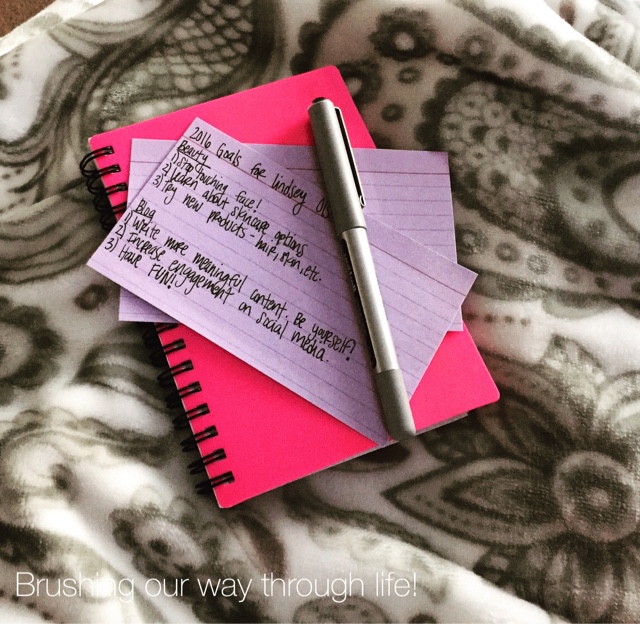 2016 Goals for Lindsey
Beauty
1) Stop touching face!
2) Learn about skincare options
3) Try new products - hair, skin, etc.
Blog
1) Write more meaningful content. Be yourself!
2) Increase engagement on social media.
3) Have FUN!
Brushing our way through life!